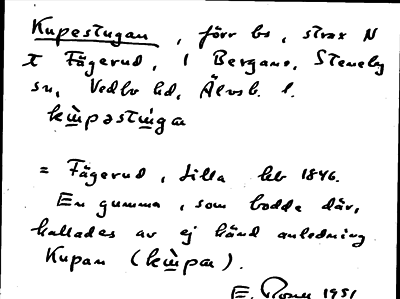 Kupestugan, förr bs, strax N
Fägerud, 1 Bergane, Steneby
sn, Vedbo hd, Älvsb. l.
kùpəstùga
= Fägerud, Lilla hb 1846.
En gumma, som bodde där,
kallades av ej känd anledning
Kupan (kùpa).
E. 1951